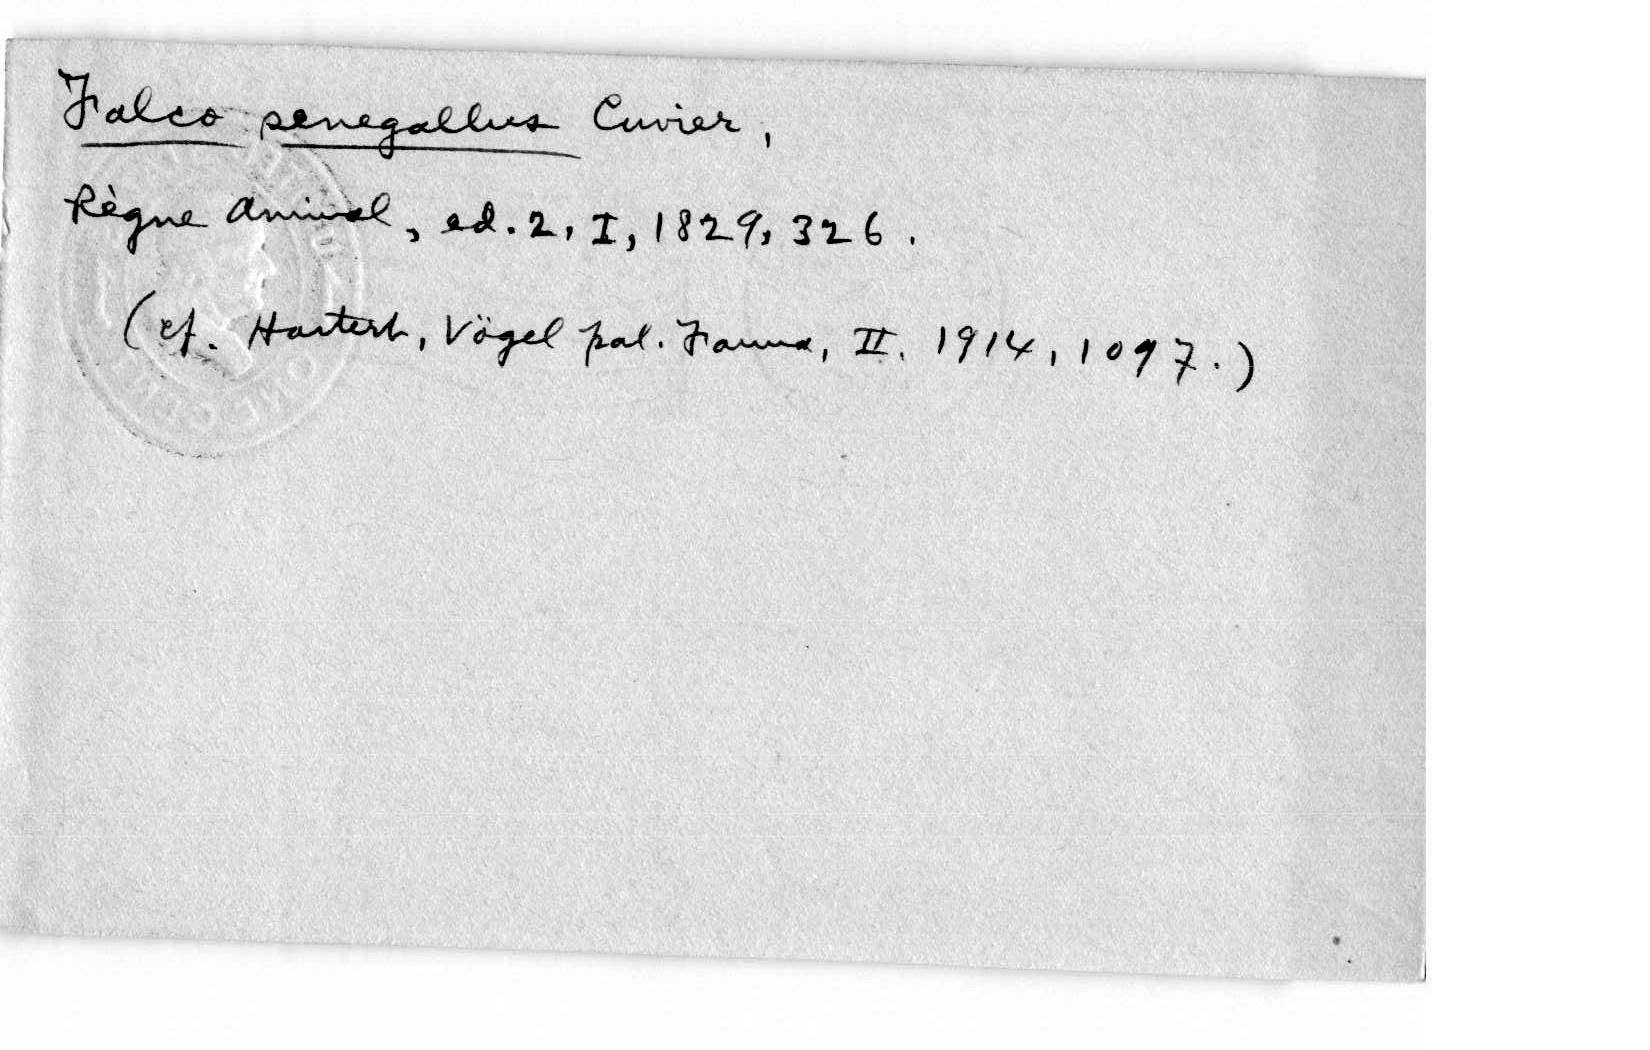 Falco senegallus Cuvier,
Règne Animal, ed. 2, I, 1829, 326.
(cf. Hartert, Vögel pal. Fauna, II. 1914, 1097.)
ONE CENT